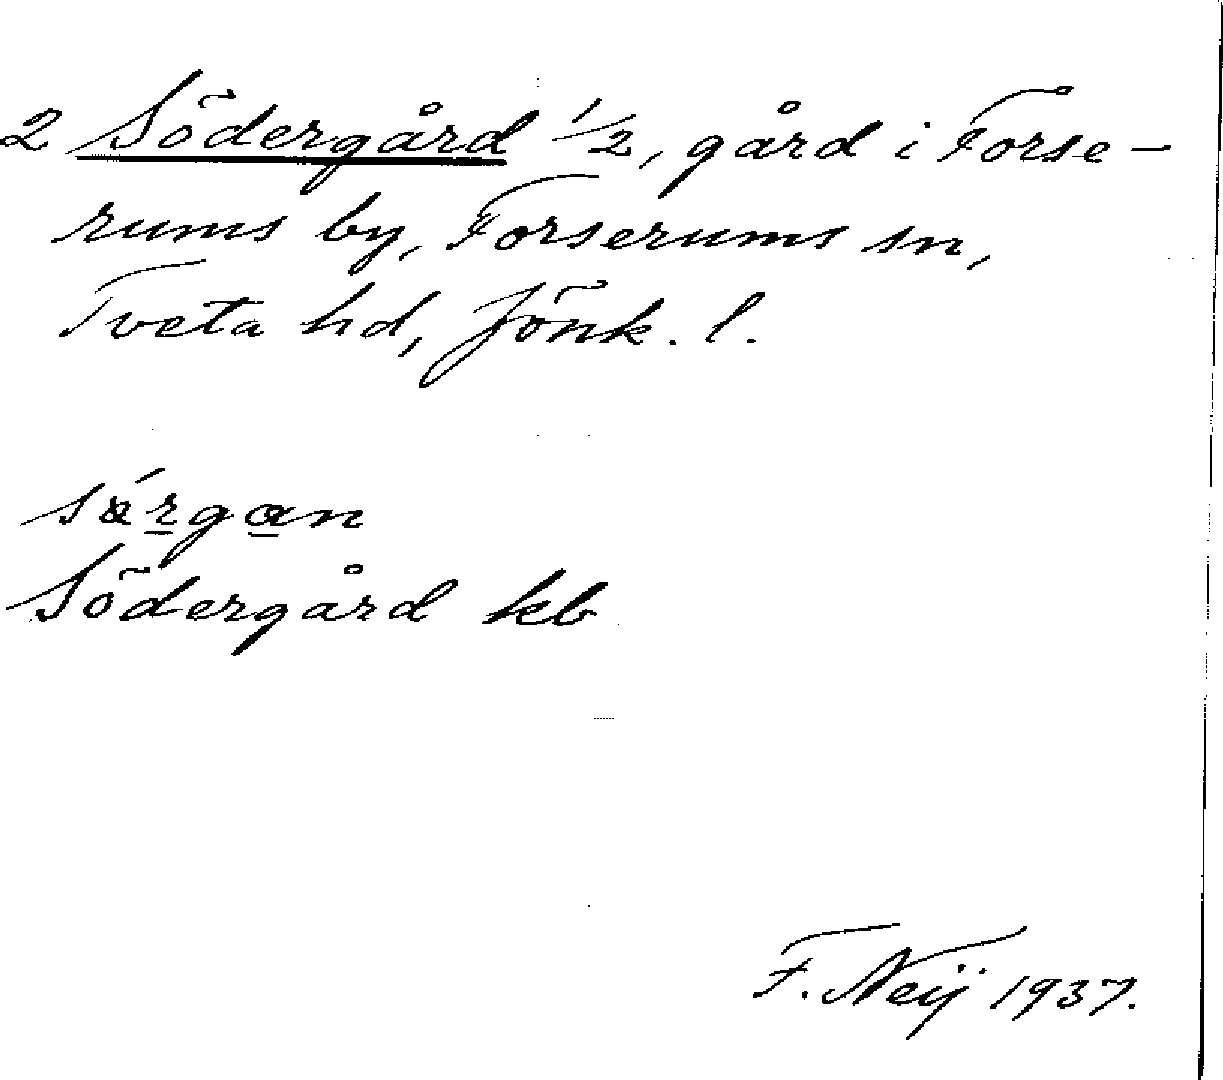 2 Södergård 1/2, gård i Forse-
rums by, Forserums sn,
Tveta hd, Jönk. l.
Södergård kb
F. Neij 1937.